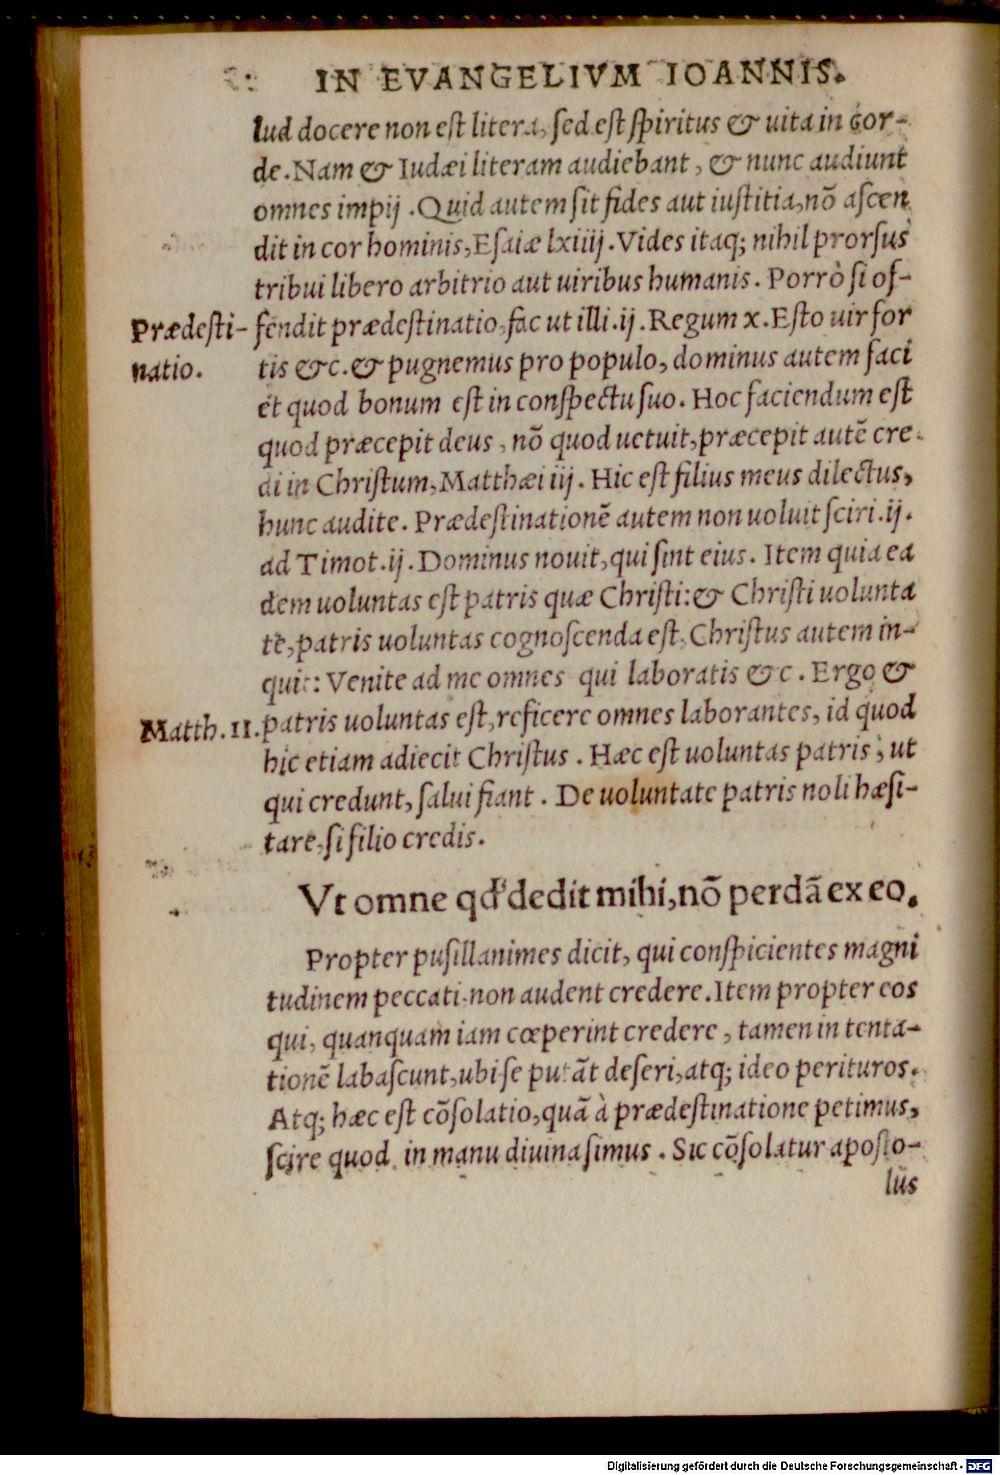 IN EVANGELIVM IOANNIS.
lud docere non est litera, sed est spiritus & uita in cor-
de. Nam & Iudæi literam audiebant, & nunc audiunt
omnes impij. Quid autem sit fides aut iustitia, nō ascen
dit in cor hominis, Esaiæ lxiiij. Vides itaq; nihil prorsus
tribui libero arbitrio aut uiribus humanis. Porrò si of-
Prædesti-
natio.
fendit prædestinatio, fac ut illi .ij. Regum x. Esto uir for
tis &c. & pugnemus pro populo, dominus autem faci
et quod bonum est in conspectu suo. Hoc faciendum est
quod præcepit deus, nō quod uetuit, præcepit autē cre
di in Christum, Matthæi iij. Hic est filius meus dilectus,
hunc audite. Prædestinationē autem non uoluit sciri .ij.
ad Timot. ij. Dominus nouit, qui sint eius. Item quia ea
dem uoluntas est patris quæ Christi: & Christi uolunta
tē, patris uoluntas cognoscenda est, Christus autem in-
quit: Venite ad me omnes qui laboratis &c. Ergo &
Matth. 11.
patris uoluntas est, reficere omnes laborantes, id quod
hic etiam adiecit Christus. Hæc est uoluntas patris, ut
qui credunt, salui fiant. De uoluntate patris noli hæsi-
tare, si filio credis.
Vt omne qd' dedit mihi, nō perdā ex eo.
Propter pusillanimes dicit, qui conspicientes magni
tudinem peccati non audent credere. Item propter eos
qui, quanquam iam cœperint credere, tamen in tenta-
tionē labascunt, ubi se putāt deseri, atq; ideo perituros.
Atq; hæc est cōsolatio, quā à prædestinatione petimus,
scire quod in manu diuina simus. Sic cōsolatur aposto-
lus
Digitalisierung gefördert durch die Deutsche Forschungsgemeinschaft - DFG